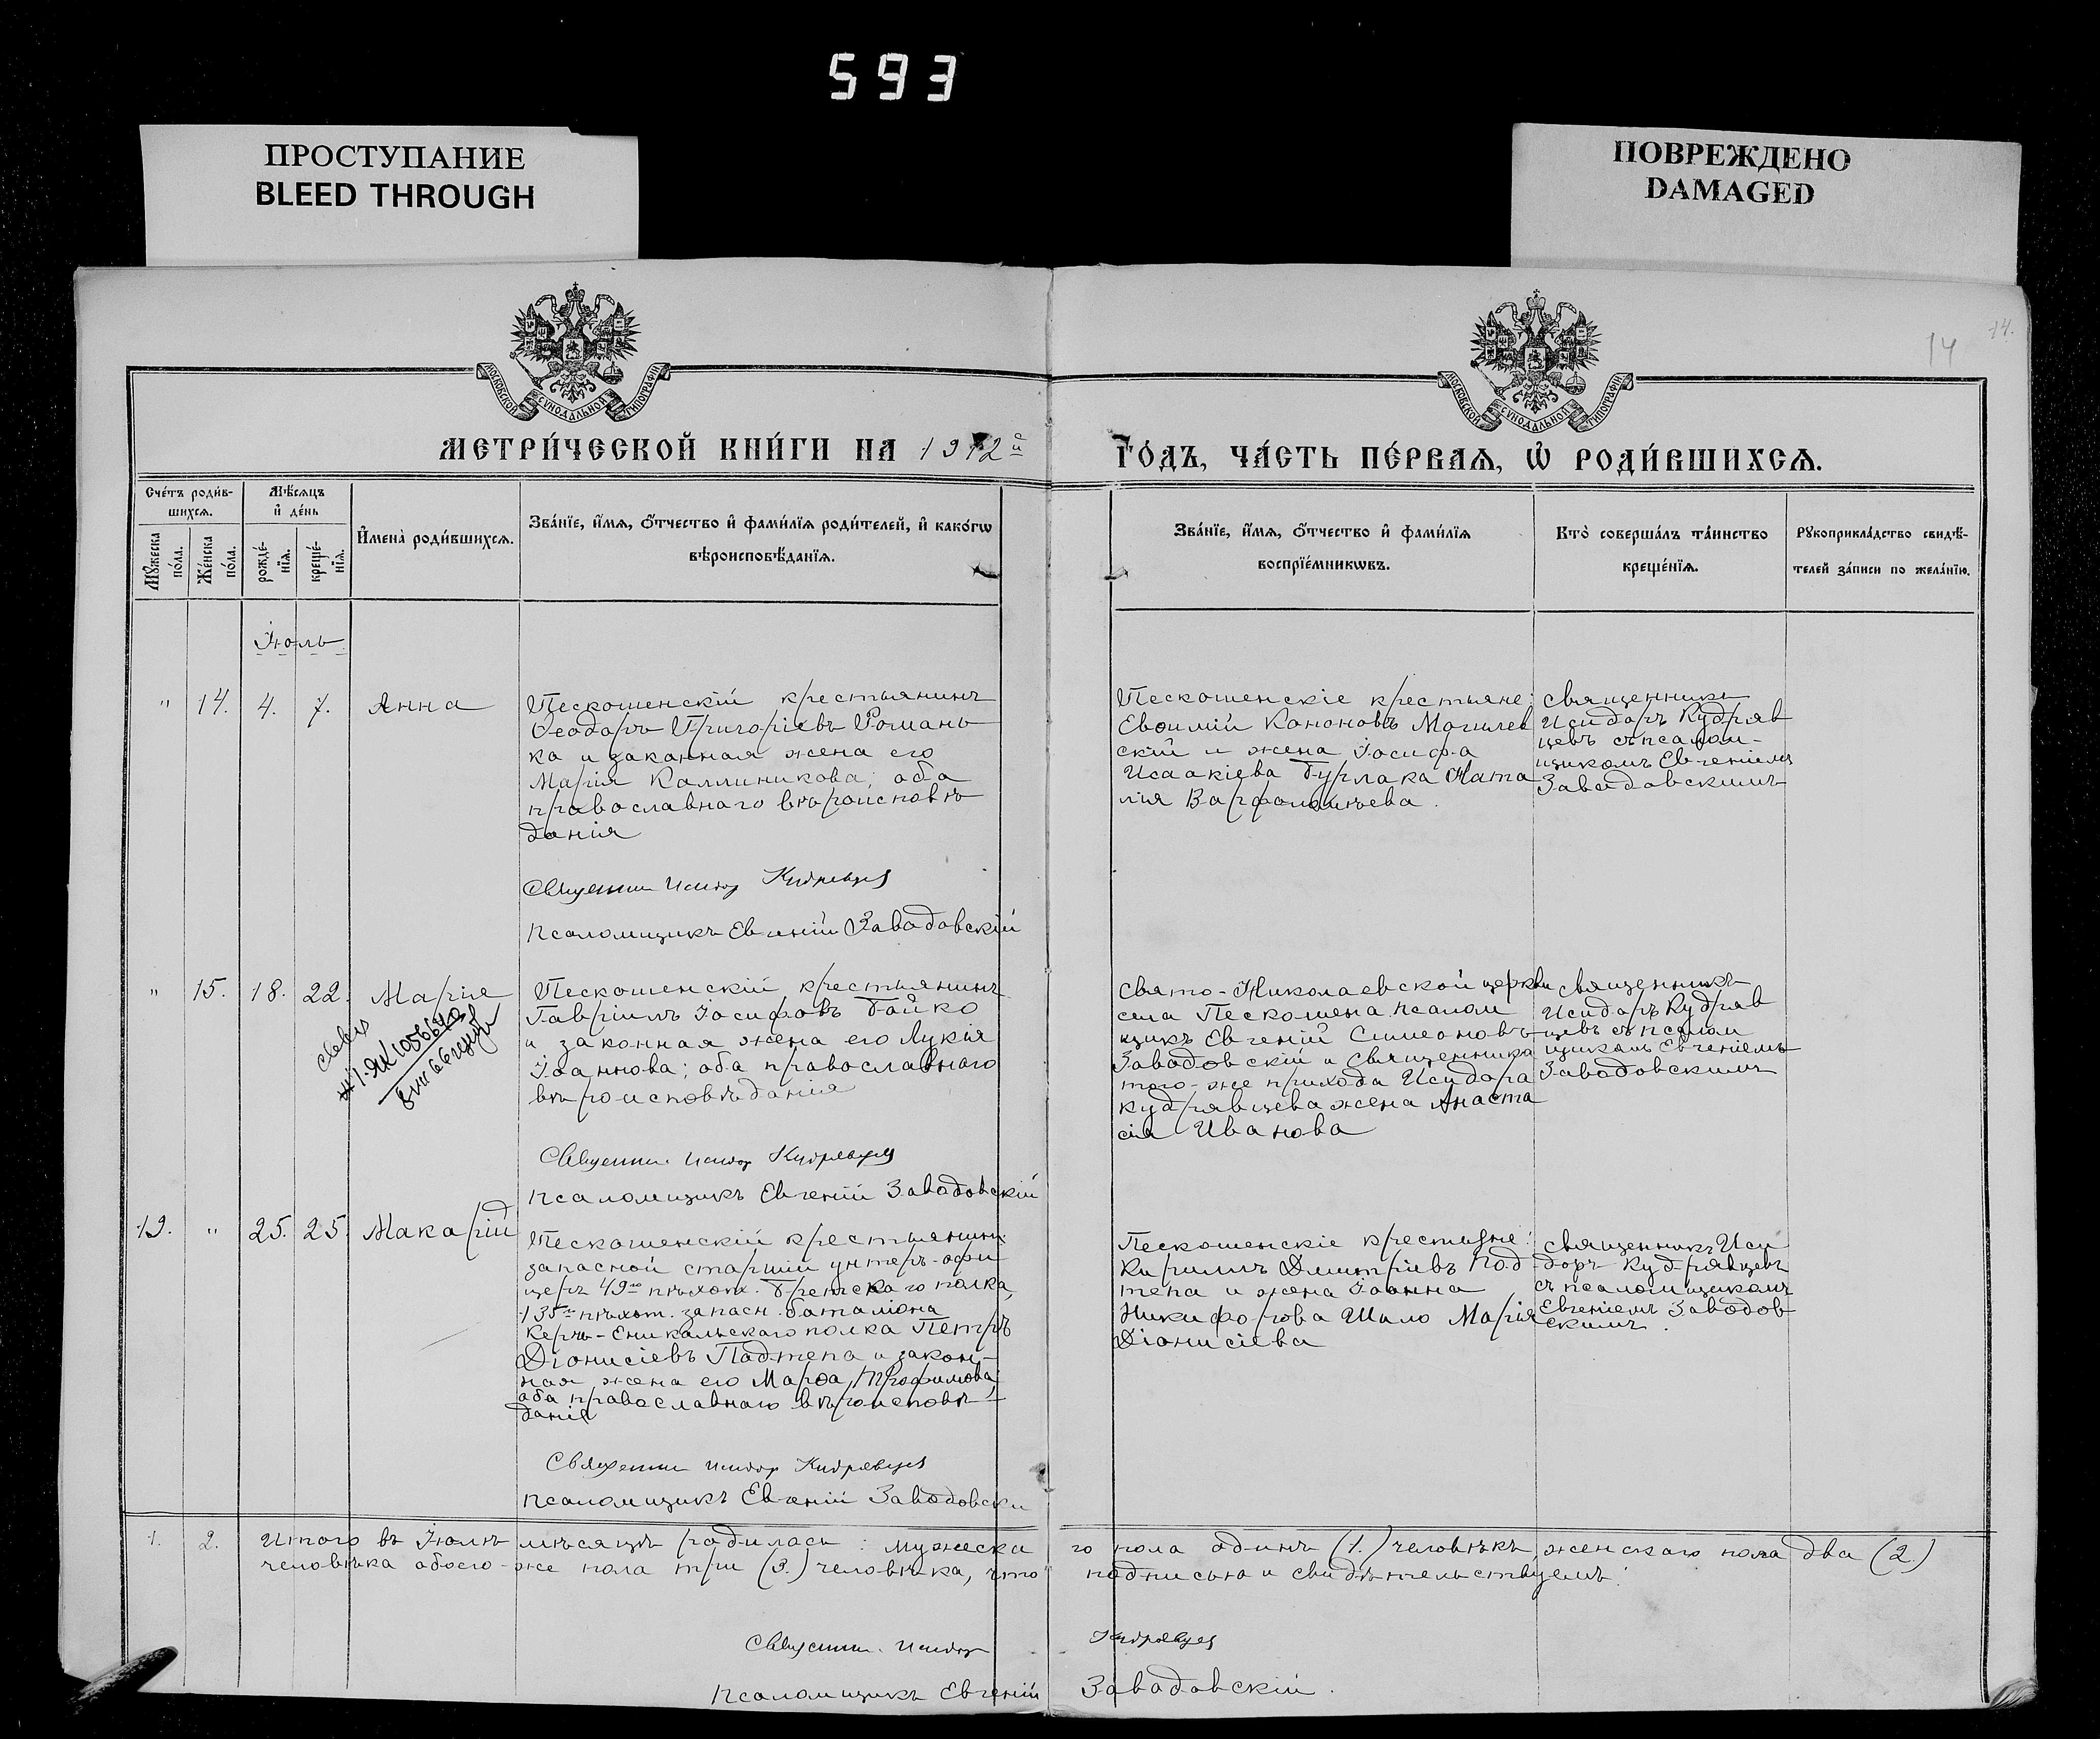 593
ПРОСТУПАНИЕ
BLEED THROUGH
ПОВРЕЖДЕНО
DAMAGED
МОСКОВСКОЙ СѴНОДАЛЬНОЙ ТИПОГРАФІИ
МОСКОВСКОЙ СѴНОДАЛЬНОЙ ТИПОГРАФІИ
14 14.
МЕТРИ́ЧЕСКОЙ КНИ́ГИ НА 1912й
ГО́ДЪ, ЧА́СТЬ ПЕ́РВАѦ, Ѡ҆ РОДИ́ВШИХСѦ.
Сче́тъ роди́в-
шихсѧ.
Мꙋ́жеска
по́ла.
Же́нска
по́ла.
Мѣ́сѧцъ
и҆ де́нь
рожде́-
нїѧ.
креще́-
нїѧ.
И҆мена̀ роди́вшихсѧ.
Зва́нїе, и҆́мѧ, ѻ҆́тчество и҆ фами́лїѧ роди́телей, и҆ како́гѡ
вѣроисповѣ́данїѧ.
Зва́нїе, и҆́мѧ, ѻ҆́тчество и҆ фами́лїѧ
воспрїе́мникѡвъ.
Кто̀ соверша́лъ та́инство
креще́нїѧ.
Рꙋкоприкла́дство свидѣ́-
телей за́писи по жела́нїю.
Іюль
" 14. 4. 7. Анна
Пескошенскій крестьянинъ
Ѳеодоръ Григоріевъ Романь
ка и законная жена его
Марія Каллиникова; оба
православнаго вѣроисповѣ
данія
Священник Исидор Кудрявцев
Псаломщикъ Евгеній Завадовскій
Пескошенскіе крестьяне:
Евѳимій Кононовъ Могилев
скій и жена Іосифа
Исаакіева Бурлака Ната
лія Варфоломѣева.
Священникъ
Исидоръ Кудряв
цевъ съ псалом-
щикомъ Евгеніемъ
Завадовскимъ
" 15. 18. 22. Марія
ЯК 1056640
Пескошенскій крестьянинъ
Гавріилъ Іосифовъ Бойко
и законная жена его Лукія
Іоаннова; оба православнаго
вѣроисповѣданія
Священник Исидор Кудрявцев
Псаломщикъ Евгеній Завадовскій
Свято-Николаевской церкви
села Пескошена псалом
щикъ Евгеній Симеоновъ
Завадовскій и священника
того-же прихода Исидора
Кудрявцева жена Анаста
сія Иванова
Священникъ
Исидоръ Кудряв
цевъ съ псалом
щикомъ Евгеніемъ
Завадовскимъ
19. " 25. 25. Макарій
Пескошенскій крестьянинъ
запасной старшій унтеръ-офи
церъ 49го пѣхот. Брестскаго полка,
135го пѣхот. запасн. баталіона
Керчь-Еникальскаго полка Петръ
Діонисіевъ Подтепа и закон-
ная жена его Марѳа Трофимова;
оба православнаго вѣроисповѣ-
данія
Священник Исидор Кудрявцев
Псаломщикъ Евгеній Завадовскій
Пескошенскіе крестьяне:
Кириллъ Дмитріевъ Под
тепа и жена Іоанна
Никифорова Шило Марія
Діонисіева
Священникъ Иси
доръ Кудрявцевъ
съ псаломщикомъ
Евгеніемъ Завадов
скимъ.
1. 2. Итого въ Іюлѣ мѣсяцѣ родилось: мужеска го пола одинъ (1.) человѣкъ, женскаго пола два (2.)
человѣка обоего-же пола три (3.) человѣка, что подписью и свидѣтельствуемъ:
Священник Исидор Кудрявцев
Псаломщикъ Евгеній Завадовскій.